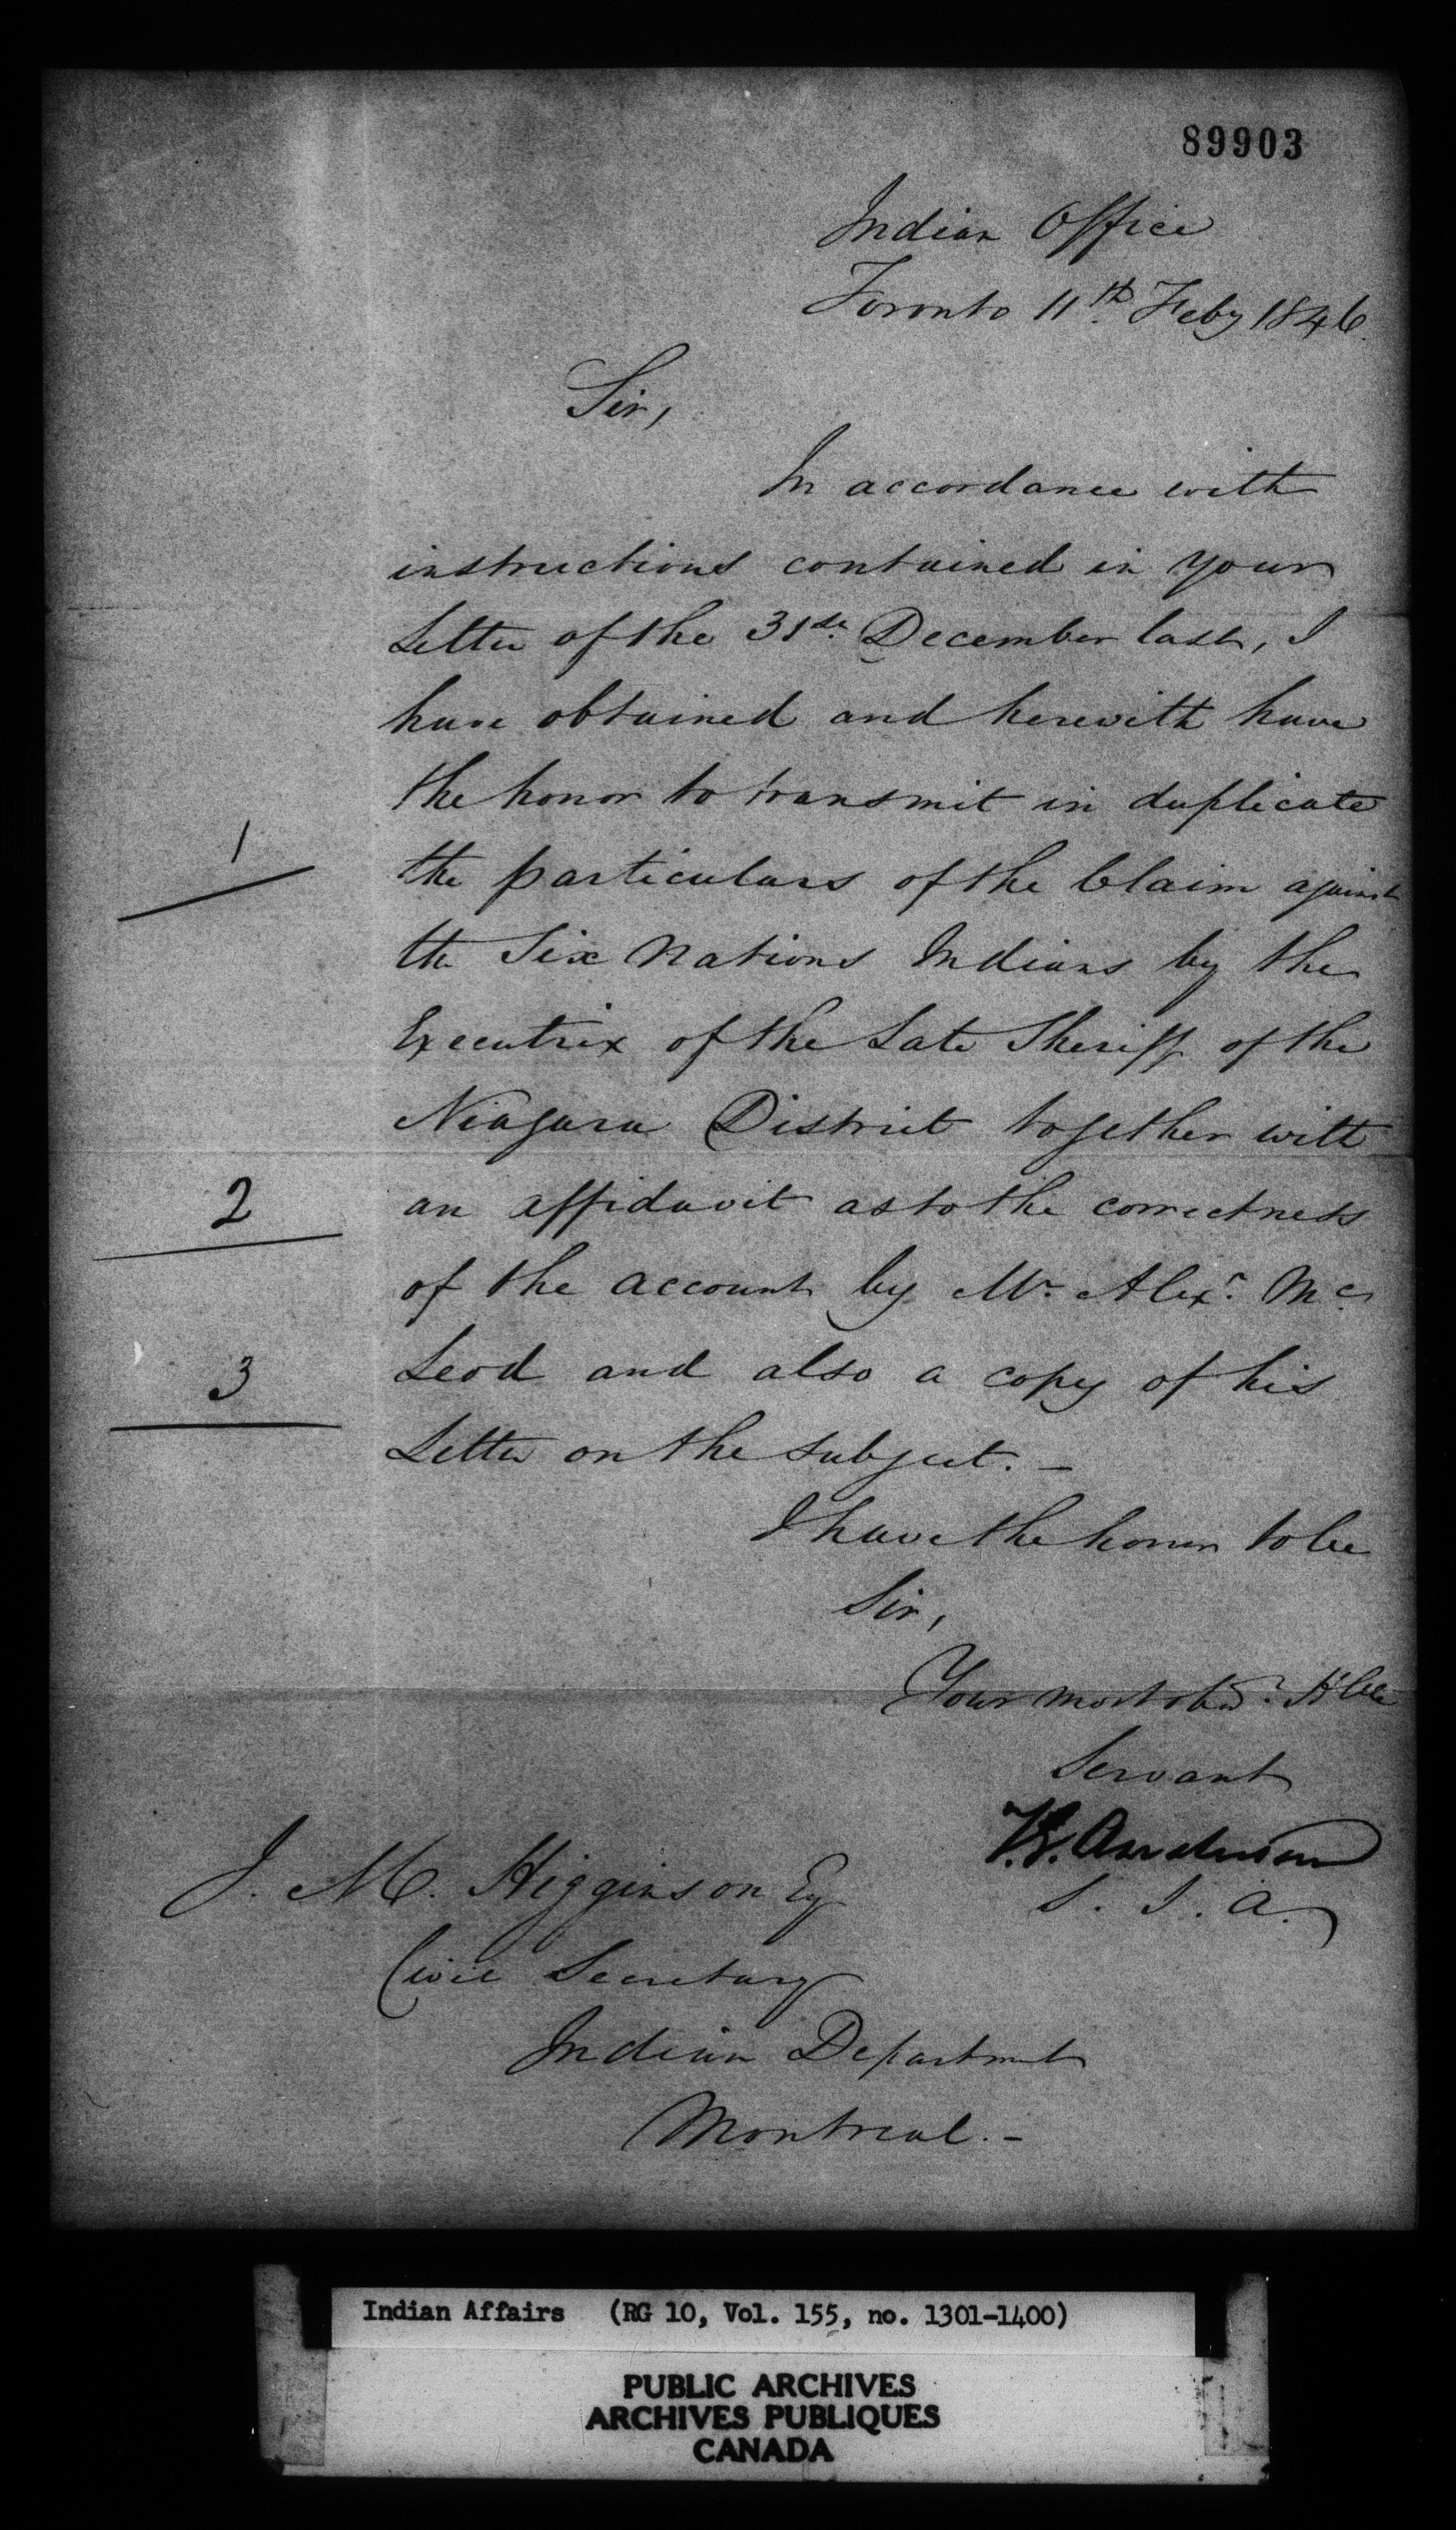 89903
Indian Office
Toronto 11th Feby 1846.
Sir,
In accordance with
instructions contained in your
Letter of the 31st December last, I
have obtained and herewith have
the honor to transmit in duplicate
1
the particulars of the Claim against
the Six Nations Indians by the
Executrix of the Late Sheriff of the
Niagara District together with
2
an affidavit as to the correctness
of the account by Mr. Alexr. Mc
3
Leod and also a copy of his
Letter on the subject. —
I have the honor to be
Sir,
Your most obdt. H'ble
Servant
T.G. Anderson
S. I. A.
J. M. Higginson Esq
Civil Secretary
Indian Department
Montreal. —
Indian Affairs (RG 10, Vol. 155, no. 1301-1400)
PUBLIC ARCHIVES
ARCHIVES PUBLIQUES
CANADA